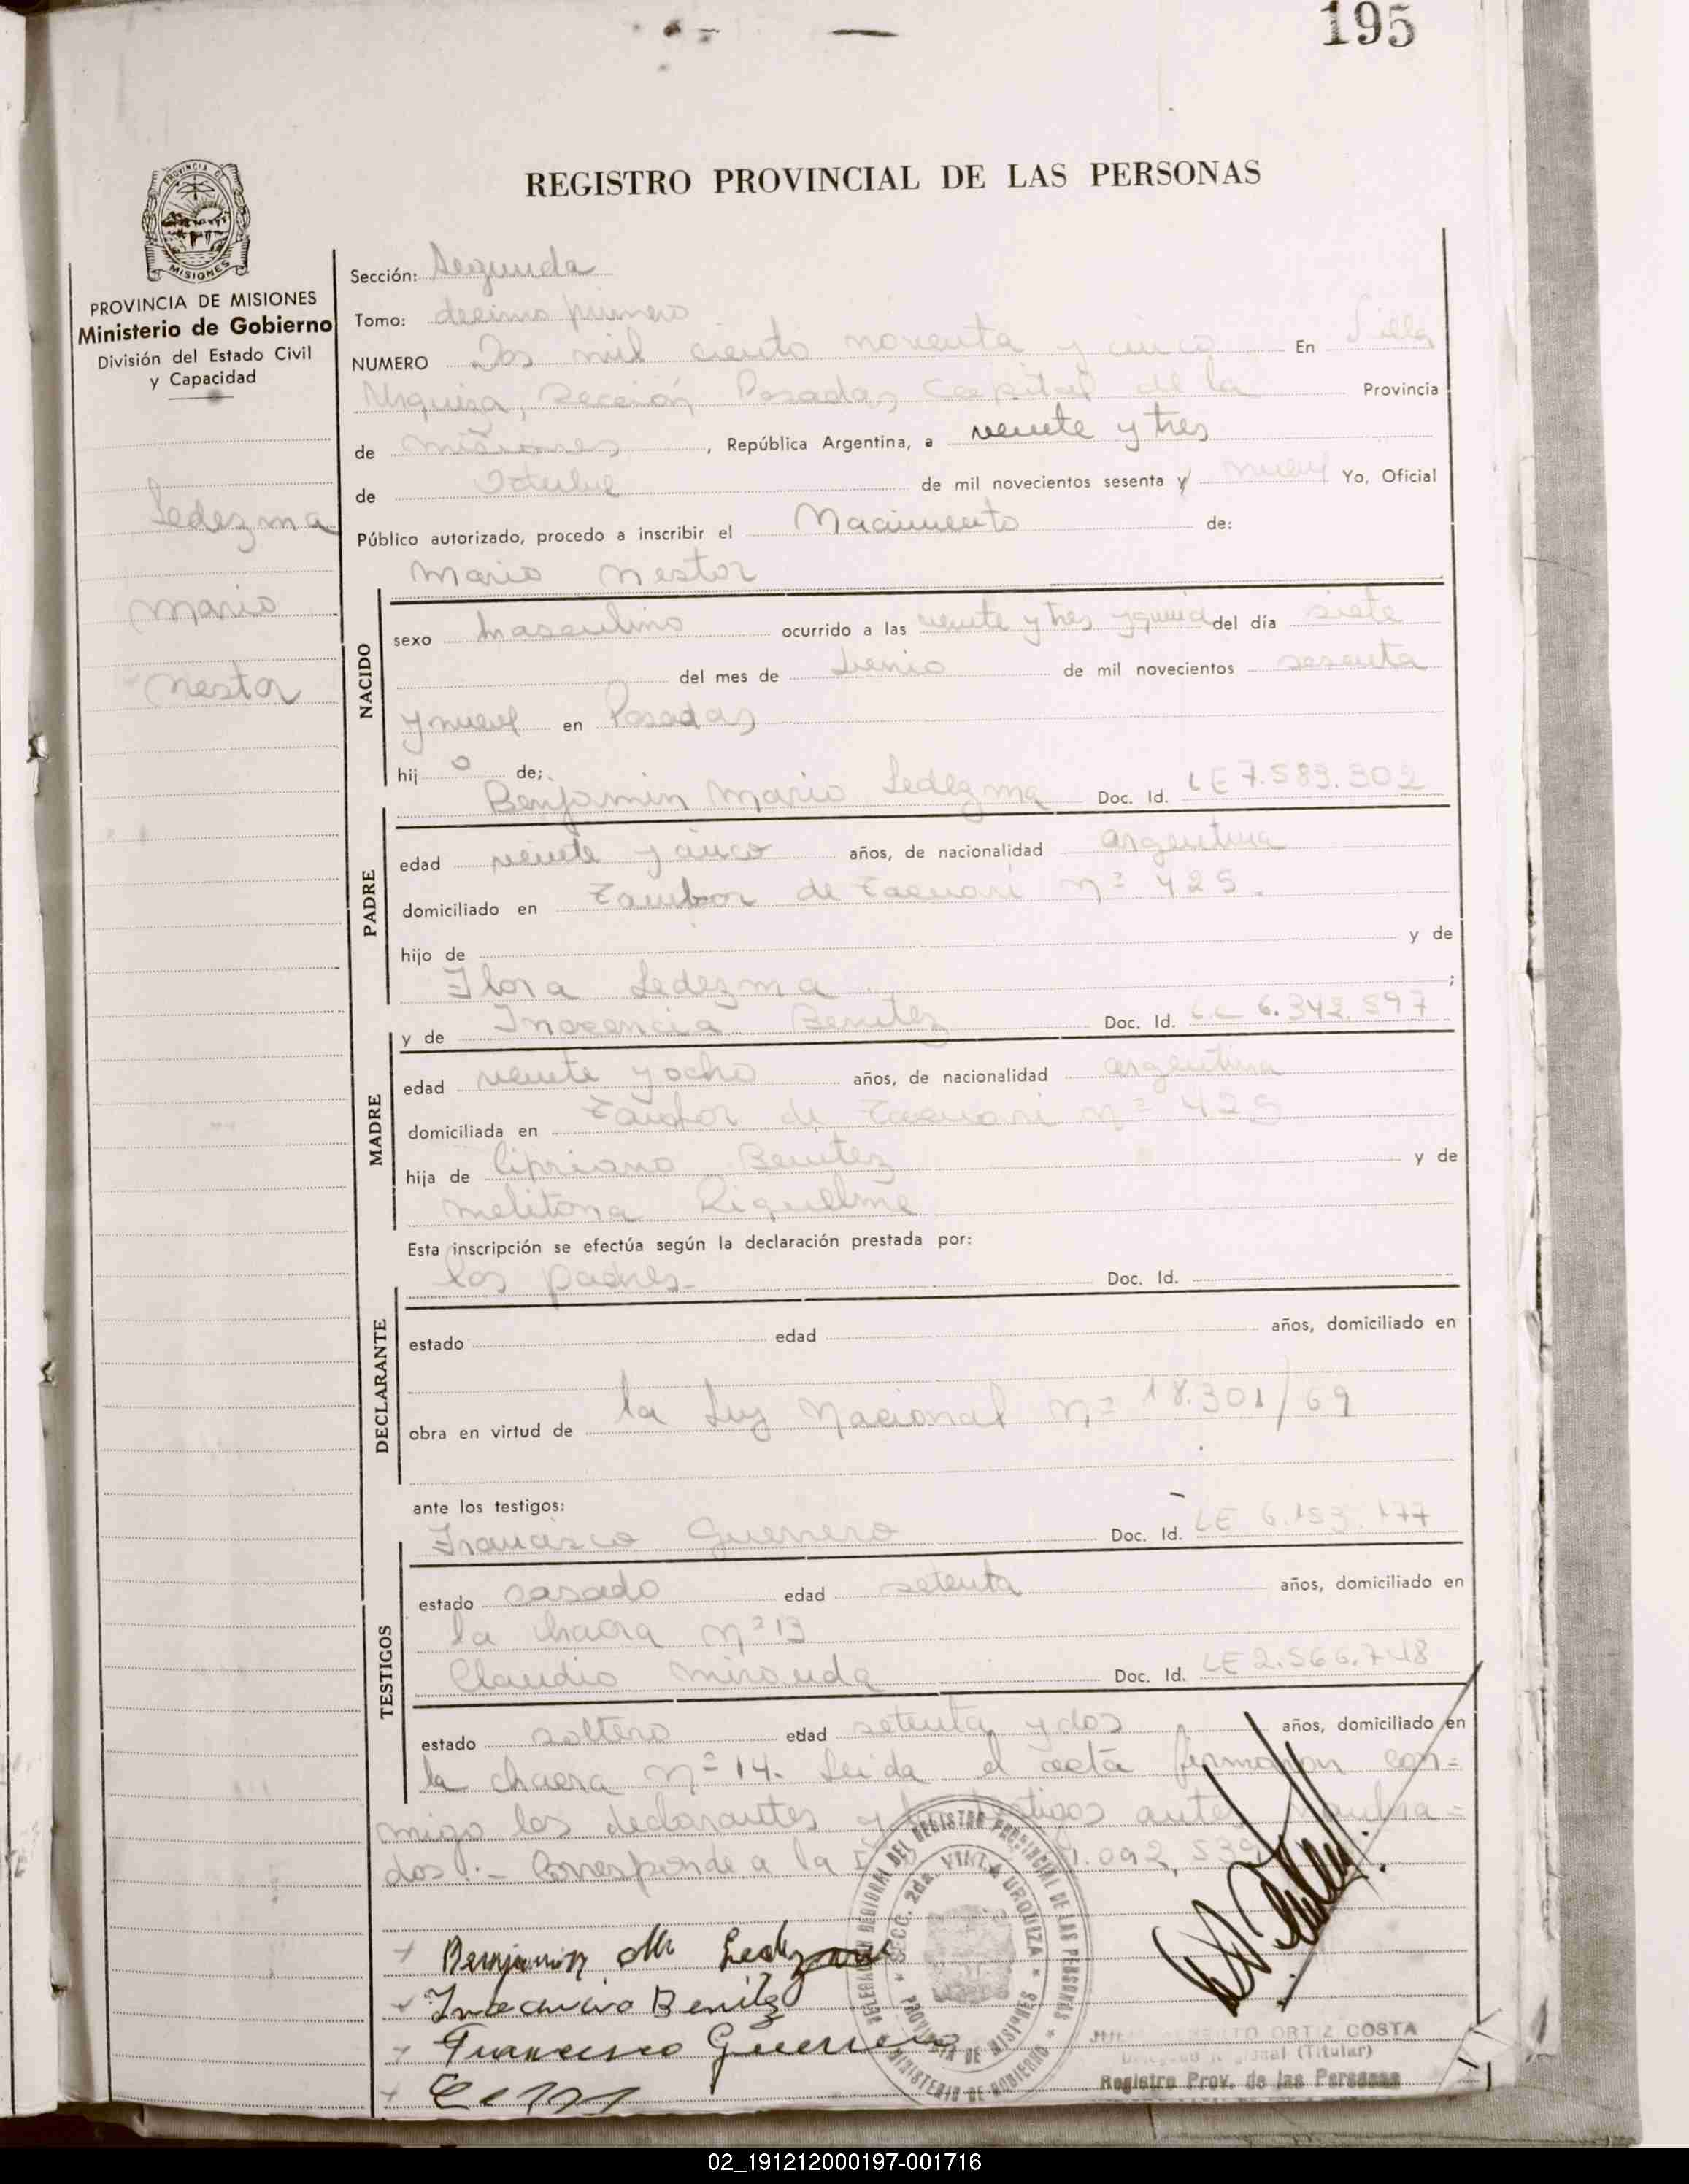 195
PROVINCIA DE MISIONES
REGISTRO PROVINCIAL DE LAS PERSONAS
PROVINCIA DE MISIONES
Ministerio de Gobierno
División del Estado Civil
y Capacidad
Ledezma
Mario
Nestor
Sección: Segunda
Tomo: decimo primero
NUMERO Dos mil ciento noventa y cinco En Villa
Urquiza, Sección Posadas Capital de la Provincia
de Misiones, República Argentina, a veinte y tres
de Octubre de mil novecientos sesenta y nueve Yo, Oficial
Público autorizado, procedo a inscribir el Nacimiento de:
Mario Nestor
NACIDO
sexo Masculino ocurrido a las veinte y tres y quince del día siete
del mes de Junio de mil novecientos sesenta
y nueve en Posadas
hijo de;
Benjamin Mario Ledezma Doc. Id. LE 7.583.302
PADRE
edad veinte y cinco años, de nacionalidad argentina
domiciliado en Tambor de Tacuari nº 425.
hijo de y de
Flora Ledezma ;
y de Inocencia Benitez Doc. Id. LC 6.342.597
MADRE
edad veinte y ocho años, de nacionalidad argentina
domiciliada en Tambor de Tacuari nº 425
hija de Cipriano Benitez y de
Melitona Riquelme
Esta inscripción se efectúa según la declaración prestada por:
los padres.- Doc. Id.
DECLARANTE
estado edad años, domiciliado en
obra en virtud de la Ley Nacional nº 18.301/69
ante los testigos:
Francisco Guerrero Doc. Id. LE 6.153.177
TESTIGOS
estado casado edad setenta años, domiciliado en
la chacra nº 13
Claudio Miranda Doc. Id. LE 2.566.748
estado soltero edad setenta y dos años, domiciliado en
la chacra nº 14. Leida el acta firmaron con=
migo los declarantes y los testigos antes nombra=
dos.- Corresponde a la .092.539
Benjamin M Ledezma
Inocencia Benitez
Francisco Guerrero
DELEGACION REGIONAL DEL REGISTRO PROVINCIAL DE LAS PERSONAS
SECC. 2da. VILLA URQUIZA
PROVINCIA DE MISIONES
MINISTERIO DE GOBIERNO
ORTIZ COSTA
(Titular)
Registro Prov. de las Personas
02_191212000197-001716